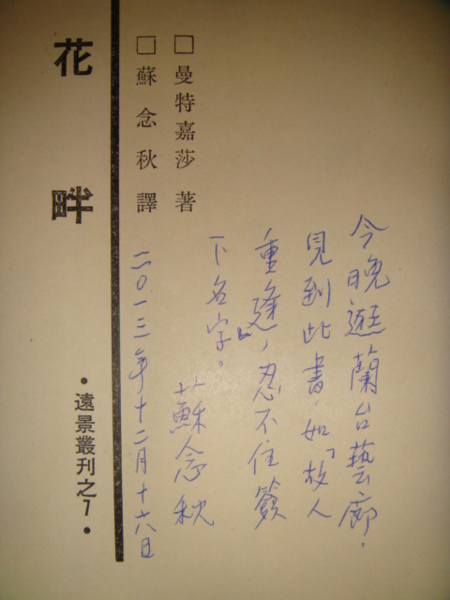 □曼特嘉莎 著
□蘇念秋 譯
花畔
•遠景叢刊之7•
今晚遊蘭台藝廊.
見到此書,如「故人
重逢」,忍不住簽
下名字。
蘇念秋
二〇一三年十二月十六日